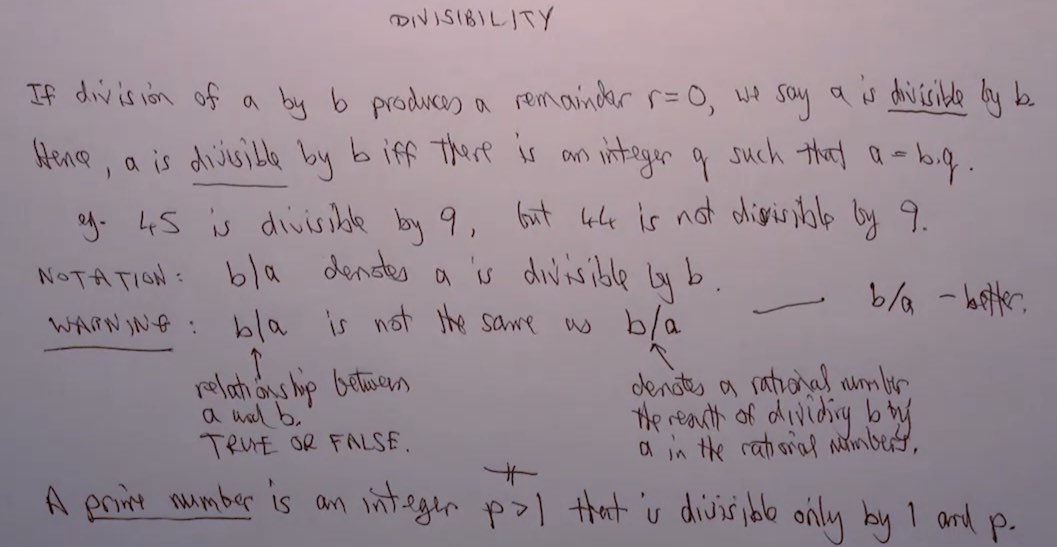 DIVISIBILITY
If division of a by b produces a remainder r=0, we say a is divisible by b.
Hence, a is divisible by b iff there is an integer q such that a = b.q.
eg. 45 is divisible by 9, but 44 is not divisible by 9.
NOTATION: b|a denotes a is divisible by b.
WARNING: b|a is not the same as b/a — b/a - better.
relationship between
a and b.
TRUE OR FALSE.
denotes a rational number
the result of dividing b by
a in the rational numbers.
A prime number is an integer p>1 that is divisible only by 1 and p.